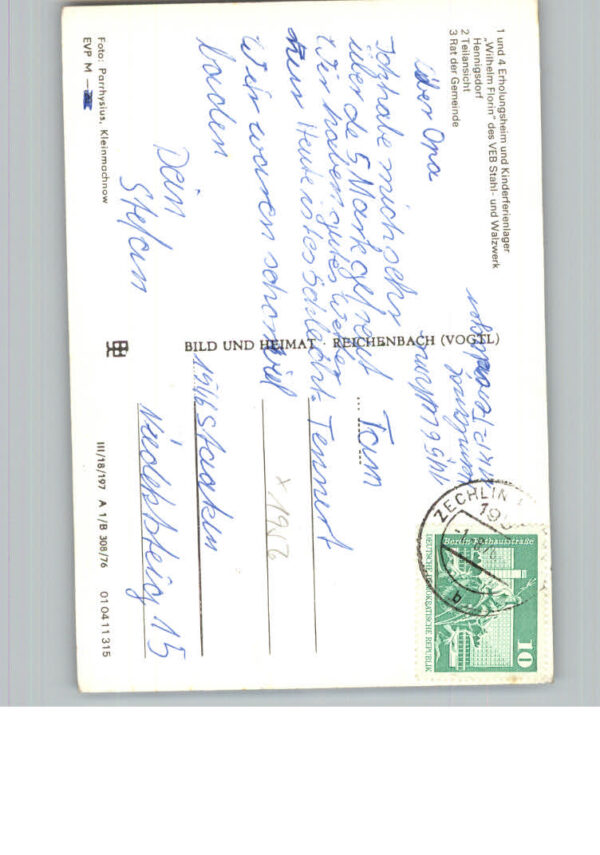 1 und 4 Erholungsheim und Kinderferienlager
„Wilhelm Florin" des VEB Stahl- und Walzwerk
Hennigsdorf
2 Teilansicht
3 Rat der Gemeinde
Lieber Opa
Ich habe mich sehr
über de 5 Mark gefreut
Wir haben gutes Wetter
nur Heute ist es schlecht.
Wir waren schon viel
baden
Dein
Stefan
Foto: Parrhysius, Kleinmachnow
EVP M
BILD UND HEIMAT · REICHENBACH (VOGTL)
Fam
Tennert
1546 Staaken
15
III/18/197 A 1/B 308/76 010411315
ZECHLIN
Berlin-Rathausstraße
DEUTSCHE DEMOKRATISCHE REPUBLIK
10